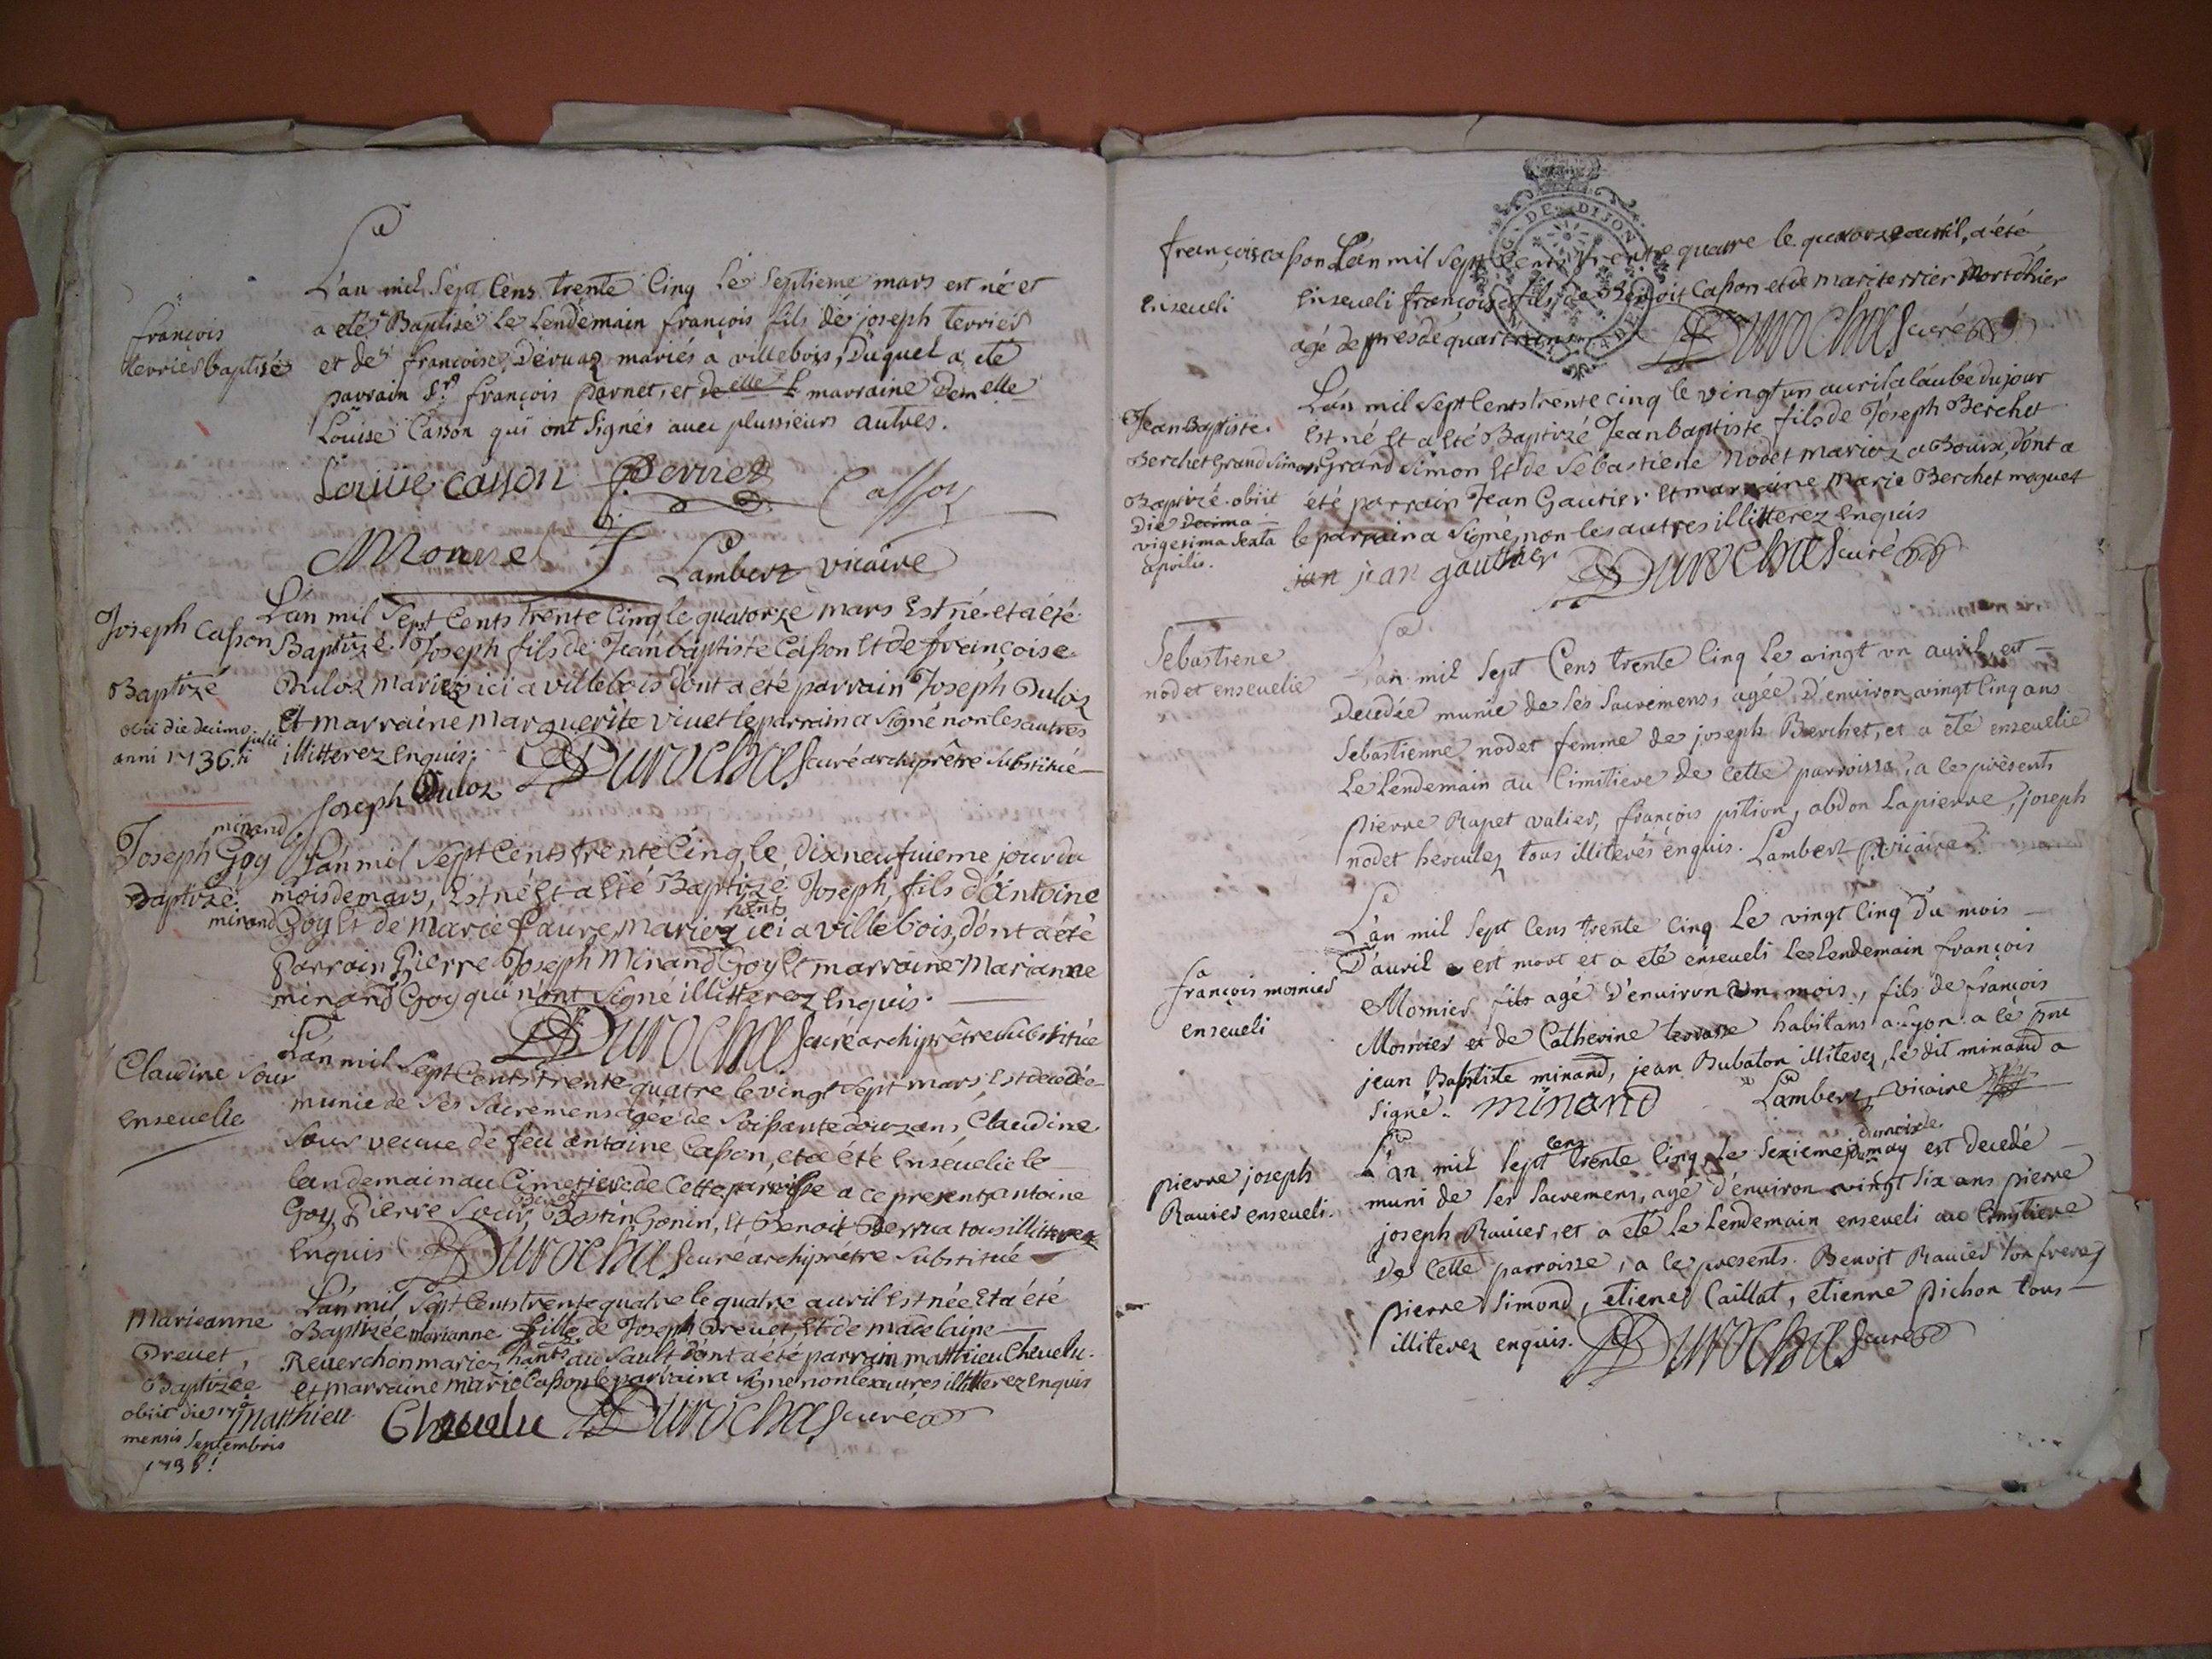 L'an mil Sept Cens trente Cinq Le Septieme mars est né et
françois
terrier baptisé
a eté Baptisé Le Lendemain françois fils de joseph terrier
et de françoise Dervaz mariés a villebois, Duquel a eté
parrain Sr. françois pernet, et marraine Demelle
Louise Casson qui ont Signés avec plussieurs autres.
Louise casson Pernet Casson
Lambert vicaire
Joseph Casson
Baptizé
obiit die decimo julii
anni 1736.
L'an mil Sept Cents trente Cinq le quatorze mars Est né et a été
Baptizé Joseph fils de Jean baptiste Casson Et de françoise
Duloz mariez ici a villebois dont a été parrain Joseph Duloz
Et marraine Marguerite vivet le parrain a signé non les autres
illitterez Enquis.
Durochas curé archiprêtre Substitué
Joseph Duloz
Joseph minand Goy
Baptizé
L'an mil Sept Cents trente Cinq le dix neufuieme jour du
mois de mars, Est né Et a Eté Baptizé Joseph, fils d'Antoine
minand Goy Et de Marie faure, mariez hants ici a villebois, dont a été
parrain Pierre Joseph Minand Goy Et marraine Marianne
minand Goy qui n'ont Signé illitterez Enquis.
Durochas curé archiprêtre Substitué
Claudine Sour
Ensevelie
L'an mil Sept Cents trente quatre le vingt Sept mars, Est decedée
munie de Ses Sacremens agée de Soissante douz ans, Claudine
Sour veuve de feu antoine Casson, et a été Ensevelie le
lendemain au Cimetiere de Cette paroisse a ce presents antoine
Goy, Pierre Sour, Bastin Gonin, Et Benoit Perrua tous illitterez
Enquis Durochas curé archiprêtre Substitué
Marieanne
Drevet,
Baptizée
obiit die 17
mensis Septembris
L'an mil Sept Cents trente quatre le quatre auril Est née Et a été
Baptizée marianne fille de Joseph Drevet, Et de madelaine
Reverchon mariez hants au Sault dont a été parrain matthieu Chevelu
et marraine marie Casson le parrain a signé non les autres illitterez Enquis
Matthieu Chevelu Durochas curé
françois casson
Enseveli
L'an mil Sept Cents trente quatre le quatorze avril, a été
Enseveli françois fils de Benoit Casson et de marie terrier
agé de pres de quatre ans
Durochas curé
Jean Baptiste
Berchet Grand Simon
Baptizé obiit
Die Decima
vigesima Sexta
aprilis.
L'an mil Sept Cents trente cinq le vingt un auril a l'aube du jour
Est né Et a Eté Baptizé Jean baptiste fils de Joseph Berchet
Grand Simon Et de Sebastiene Nodet mariez a Bouix, dont a
été parrain Jean Gautier Et marraine Marie Berchet maguet
le parrain a Signé, non les autres illitterez Enquis
jan jean gauthier Durochas curé
Sebastiene
nodet ensevelie
L'an mil Sept Cens trente Cinq Le vingt un auril, est
Decedée munie de Ses Sacremens, agée D'environ vingt Cinq ans
Sebastienne nodet femme de joseph Berchet, et a été ensevelie
Le Lendemain au Cimitiere De Cette parroisse, a ce présents
pierre Rapet valier, françois pition, abdon Lapierre, joseph
nodet hercules tous illiterés enquis. Lambert vicaire
françois mornier
enseveli
L'an mil Sept Cens trente Cinq Le vingt Cinq Du mois
D'avril est mort et a eté enseveli Le Lendemain françois
Mornier fils agé D'environ un mois, fils de françois
Mornier et de Catherine terrasse habitans a a ce
jean Baptiste minand, jean Bubaton illiterez, Le dit minand a
Signé. minand Lambert vicaire
pierre joseph
Ravier enseveli.
L'an mil Sept cens trente Cinq Le Sezieme du mois de may est decedé
muni de Ses Sacremens, agé d'environ vingt Six ans pierre
joseph Ravier, et a eté Le Lendemain enseveli au Cimytiere
De Cette parroisse, a ce presents. Benoit Ravier Son frere,
pierre Simond, etiene Caillat, etienne pichon tous
illiterez enquis. Durochas curé